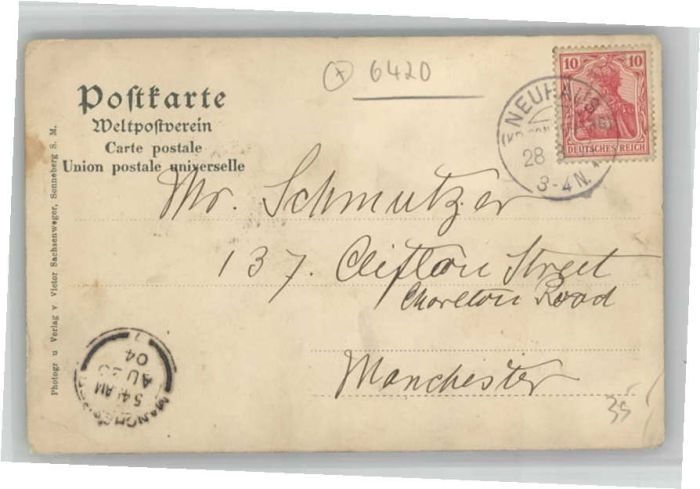 6420
Postkarte
Weltpostverein
Carte postale
Union postale universelle
10 10
DEUTSCHES REICH
NEUHAUS
28
3-4N.
Mr. Schmutzer
137. Clifton Street
Chorlton Road
Manchester
35
Photogr u Verlag v. Victor Sachsenweger, Sonneberg S. M.
5 4 AM
AU
04